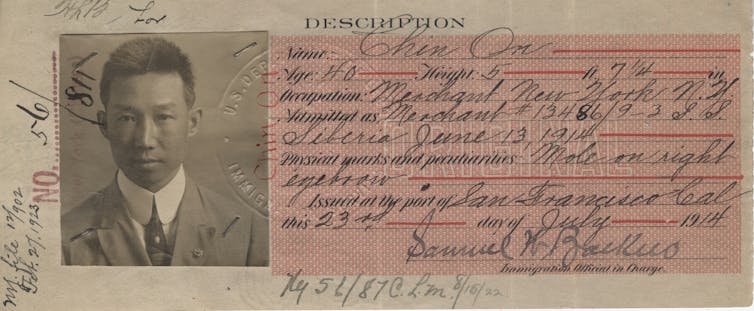 DESCRIPTION
Name. Chin On
Age: 40 Height: 5 ft. 7 1/4 in.
Occupation: Merchant New York N.Y.
Admitted as Merchant # 13486/9-3 S.S.
Siberia June 13, 1914
Physical marks and peculiarities: Mole on right
eyebrow
ORIGINAL
Issued at the port of San Francisco Cal
this 23rd day of July 1914
Samuel W Backus
Immigration Official in Charge.
NO. 56/
/87
U.S. DEP
IMMIG
Chin On
NY file 12/902
Feb. 27, 1923
Ny 56/87 C.L.M. 8/15/22